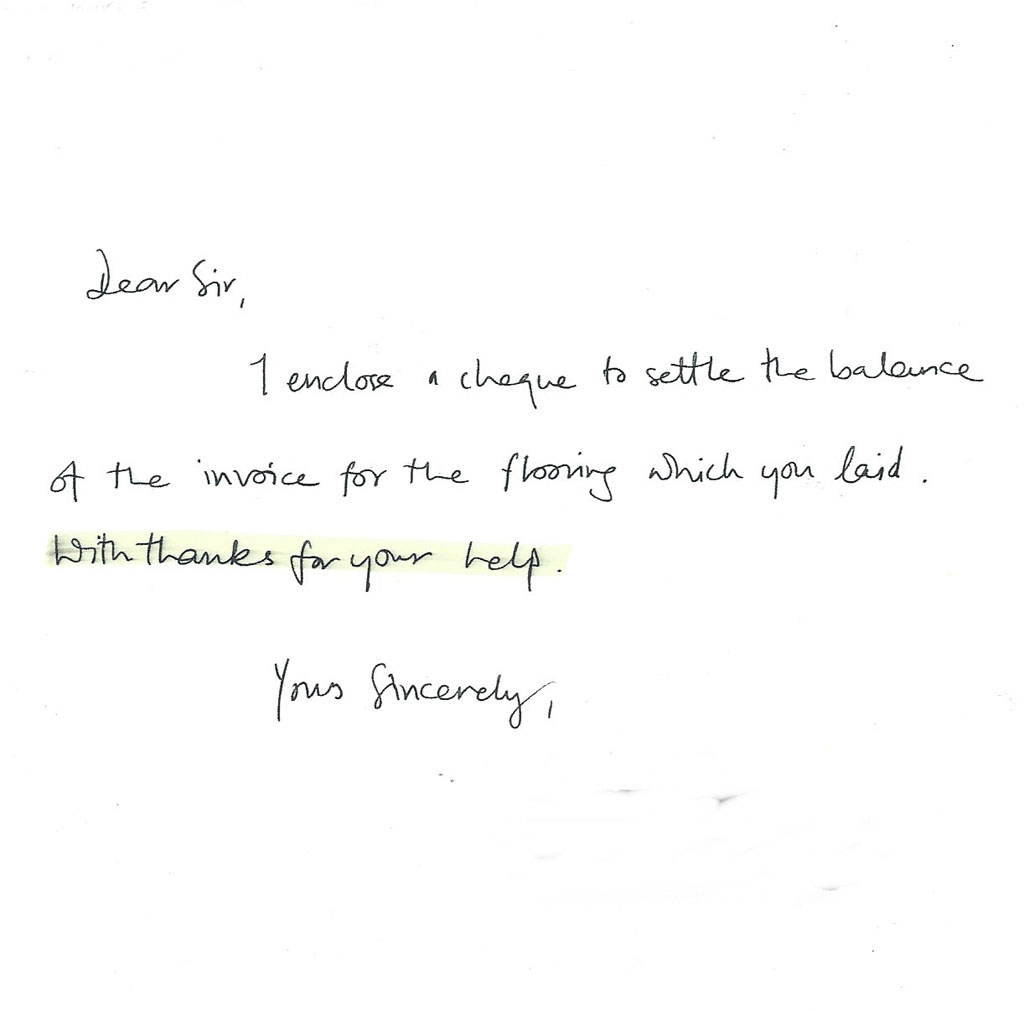 Dear Sir,
I enclose a cheque to settle the balance
of the invoice for the flooring which you laid.
With thanks for your help.
Yours Sincerely,